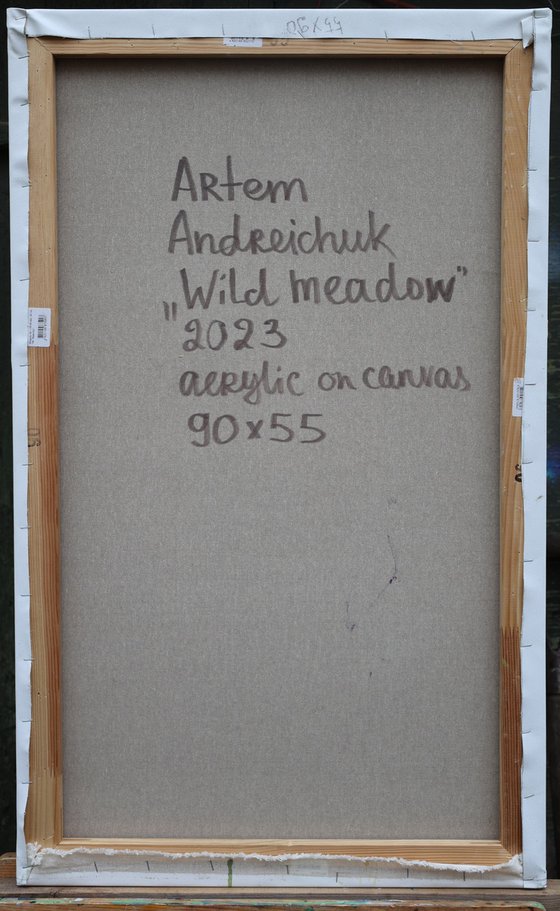 Artem
Andreichuk
„Wild meadow"
2023
acrylic on canvas
90x55